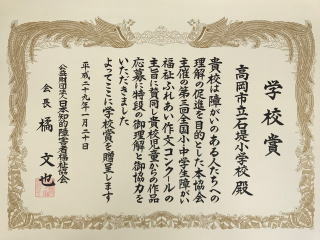 学校賞
高岡市立石堤小学校 殿
貴校は障がいのある人たちへの
理解の促進を目的とした本協会
主催の第三回全国小・中学生障がい
福祉ふれあい作文コンクールの
主旨に賛同し貴校児童からの作品
応募に特段の御理解と御協力を
いただきました
よってここに学校賞を贈呈します
平成二十九年一月二十日
公益財団法人日本知的障害者福祉協会
会長 橘 文也